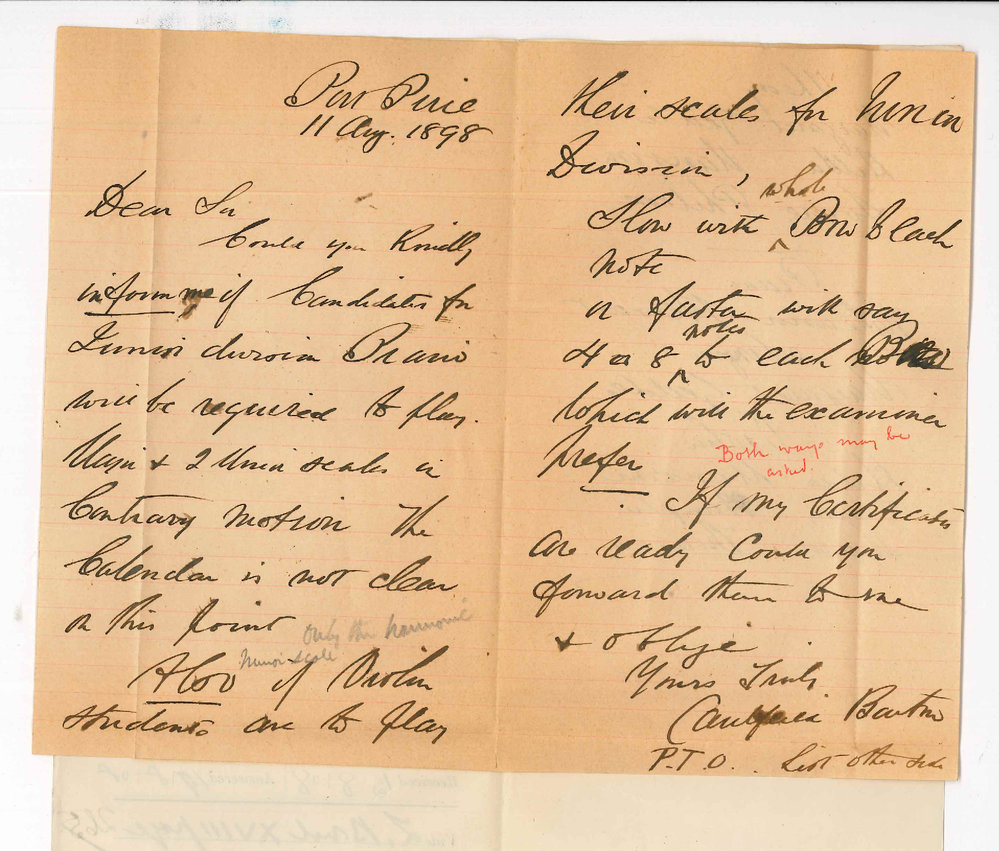 Port Pirie
11 Aug. 1898
Dear Sir
Could you Kindly
inform me if Candidates for
Junior division Piano
will be required to play.
Major & 2 Minor scales in
Contrary motion The
Calendar is not clear
on this point
Only the harmonic
minor scale
Also if Violin
students are to play
their scales for Junior
Division,
Slow with whole Bow to each
note
or faster with say
4 or 8 notes to each Bow
Which will the examiner
prefer
Both ways may be
asked.
If my Certificates
are ready Could you
forward them to me
& oblige
Yours Truly
Barton
P.T.O. List other side